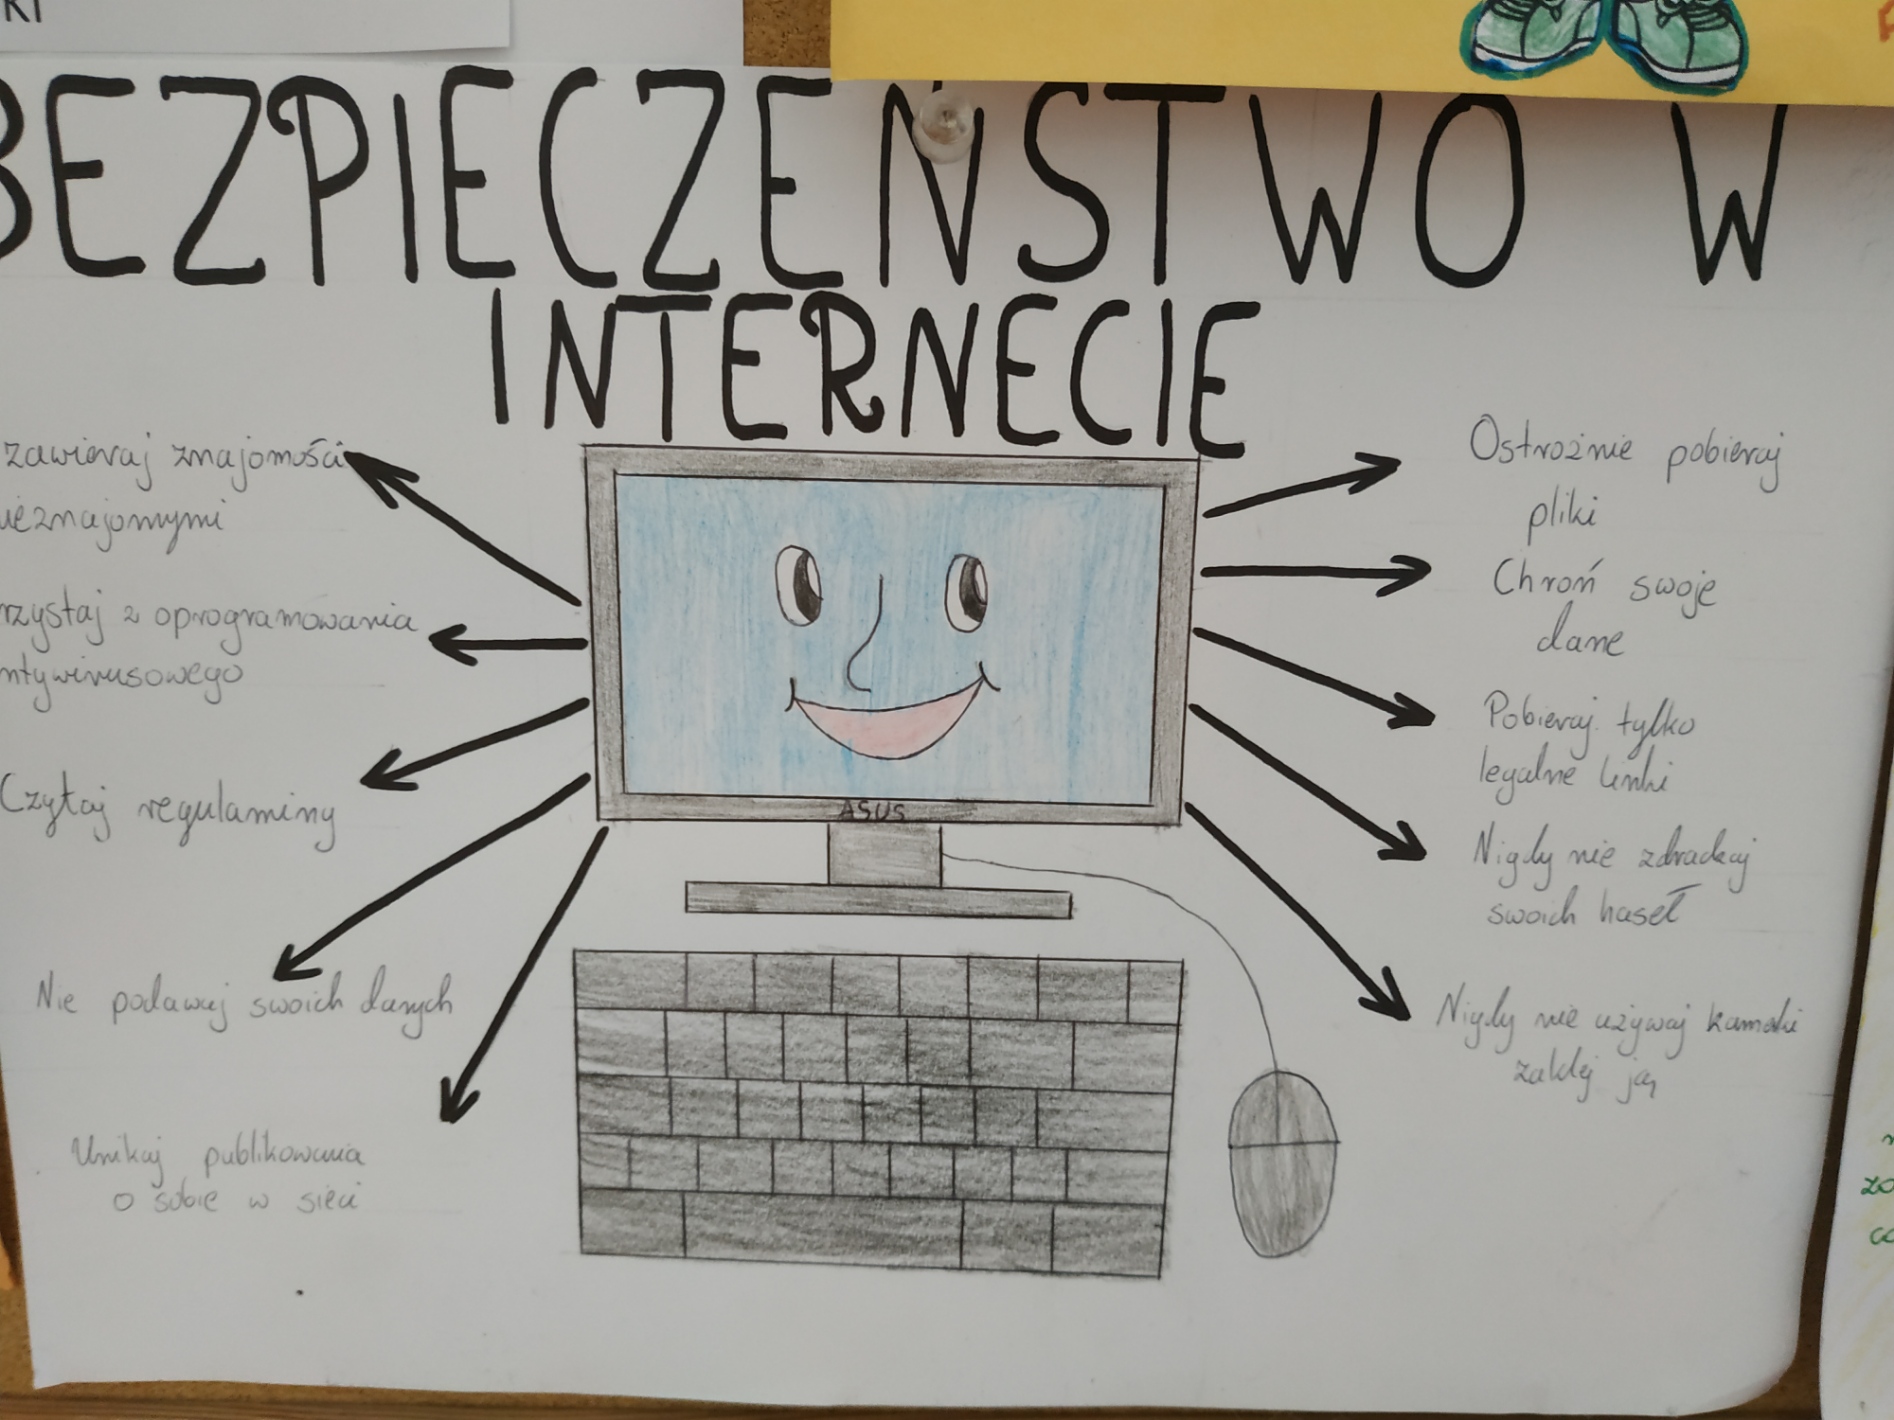 KI
BEZPIECZEŃSTWO W
INTERNECIE
zawieraj znajomości
nieznajomymi
rzystaj z oprogramowania
ntywirusowego
Czytaj regulaminy
Nie podawaj swoich danych
Unikaj publikowania
o sobie w sieci
ASUS
Ostrożnie pobieraj
pliki
Chroń swoje
dane
Pobieraj tylko
legalne linki
Nigdy nie zdradzaj
swoich haseł
Nigdy nie używaj kamerki
zaklej ją